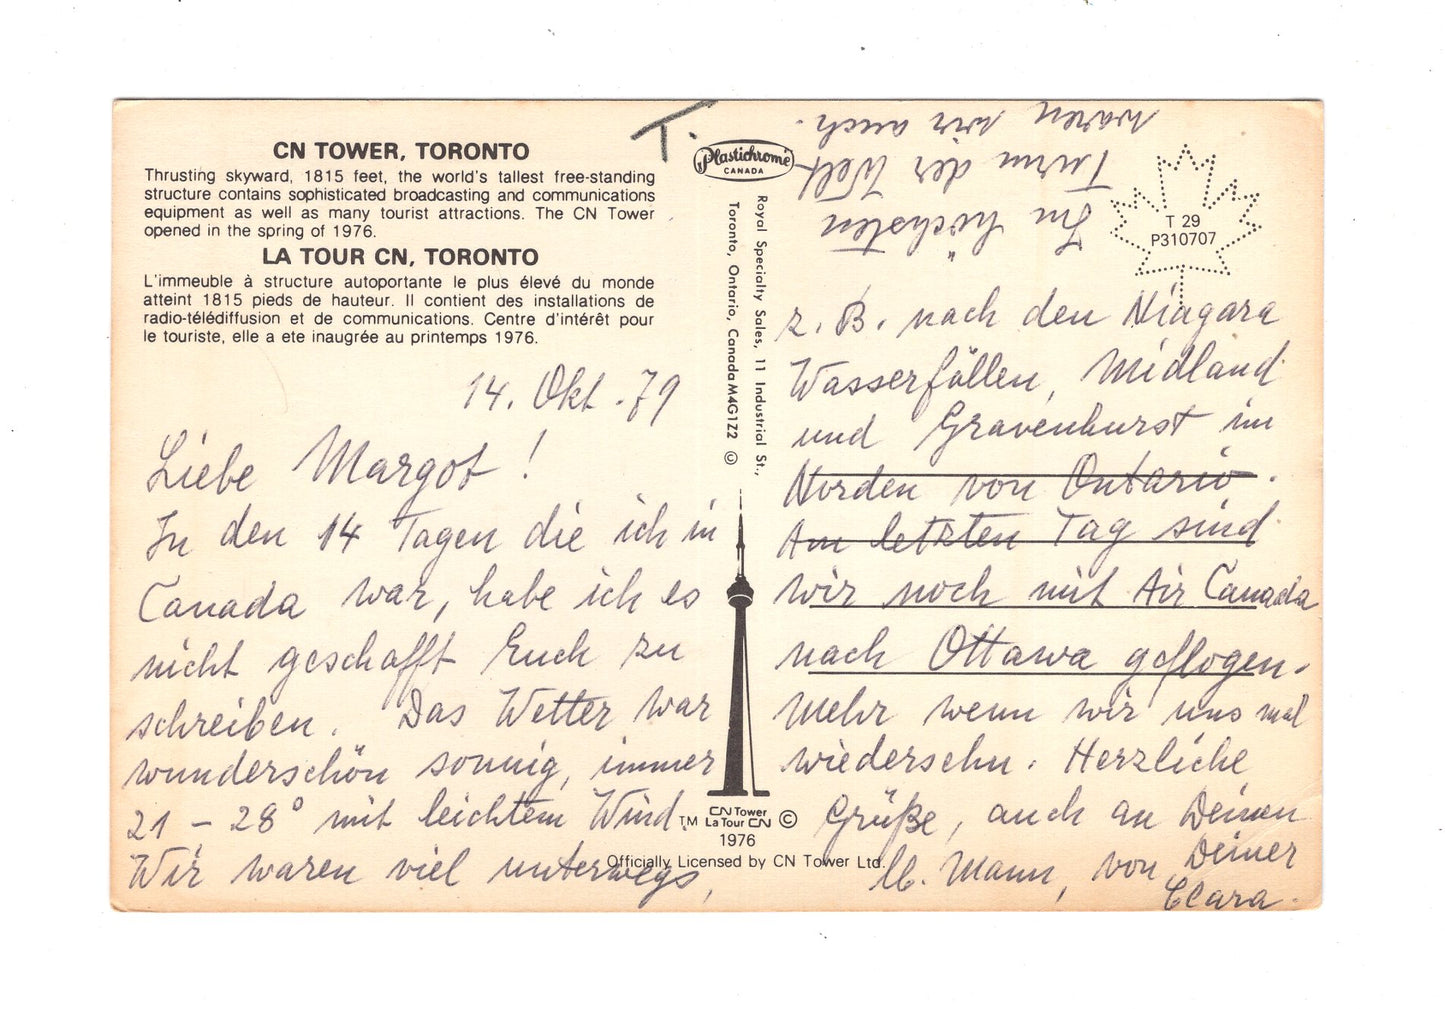 CN TOWER, TORONTO
Thrusting skyward, 1815 feet, the world's tallest free-standing
structure contains sophisticated broadcasting and communications
equipment as well as many tourist attractions. The CN Tower
opened in the spring of 1976.
LA TOUR CN, TORONTO
L'immeuble à structure autoportante le plus élevé du monde
atteint 1815 pieds de hauteur. Il contient des installations de
radio-télédiffusion et de communications. Centre d'intérêt pour
le touriste, elle a ete inaugrée au printemps 1976.
14. Okt. 79
Liebe Margot!
In den 14 Tagen die ich in
Canada war, habe ich es
nicht geschafft Euch zu
schreiben. Das Wetter war
wunderschön sonnig, immer
21 – 28° mit leichtem Wind.
Wir waren viel unterwegs,
T.
Plastichrome
CANADA
Royal Specialty Sales, 11 Industrial St.,
Toronto, Ontario, Canada M4G1Z2 ©
TM CN Tower ©
La Tour CN
1976
Officially Licensed by CN Tower Ltd.
T 29
P310707
z. B. nach den Niagara
Wasserfällen, Midland
und Gravenhurst im
Norden von Ontario.
Am letzten Tag sind
wir noch mit Air Canada
nach Ottawa geflogen.
Mehr wenn wir uns mal
wiedersehn. Herzliche
Grüße, auch an Deinen
lb. Mann, von Deiner
Clara.
Im höchsten
Turm der Welt
waren wir auch.